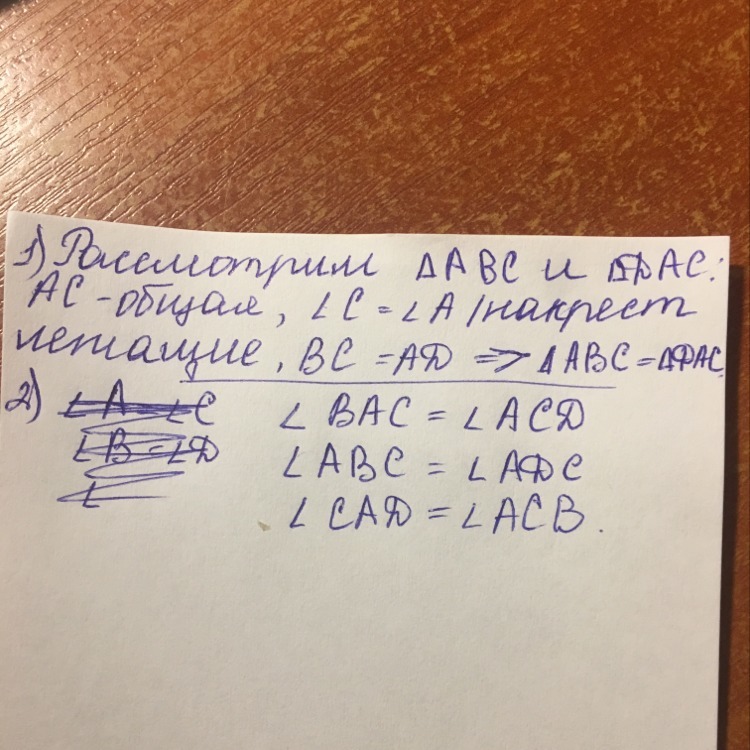 1) Рассмотрим ΔABC и ΔDAC:
AC - общая, ∠C = ∠A /накрест
лежащие, BC = AD => ΔABC = ΔDAC
2) ∠A = ∠C ∠BAC = ∠ACD
∠B = ∠D ∠ABC = ∠ADC
∠ ∠CAD = ∠ACB.